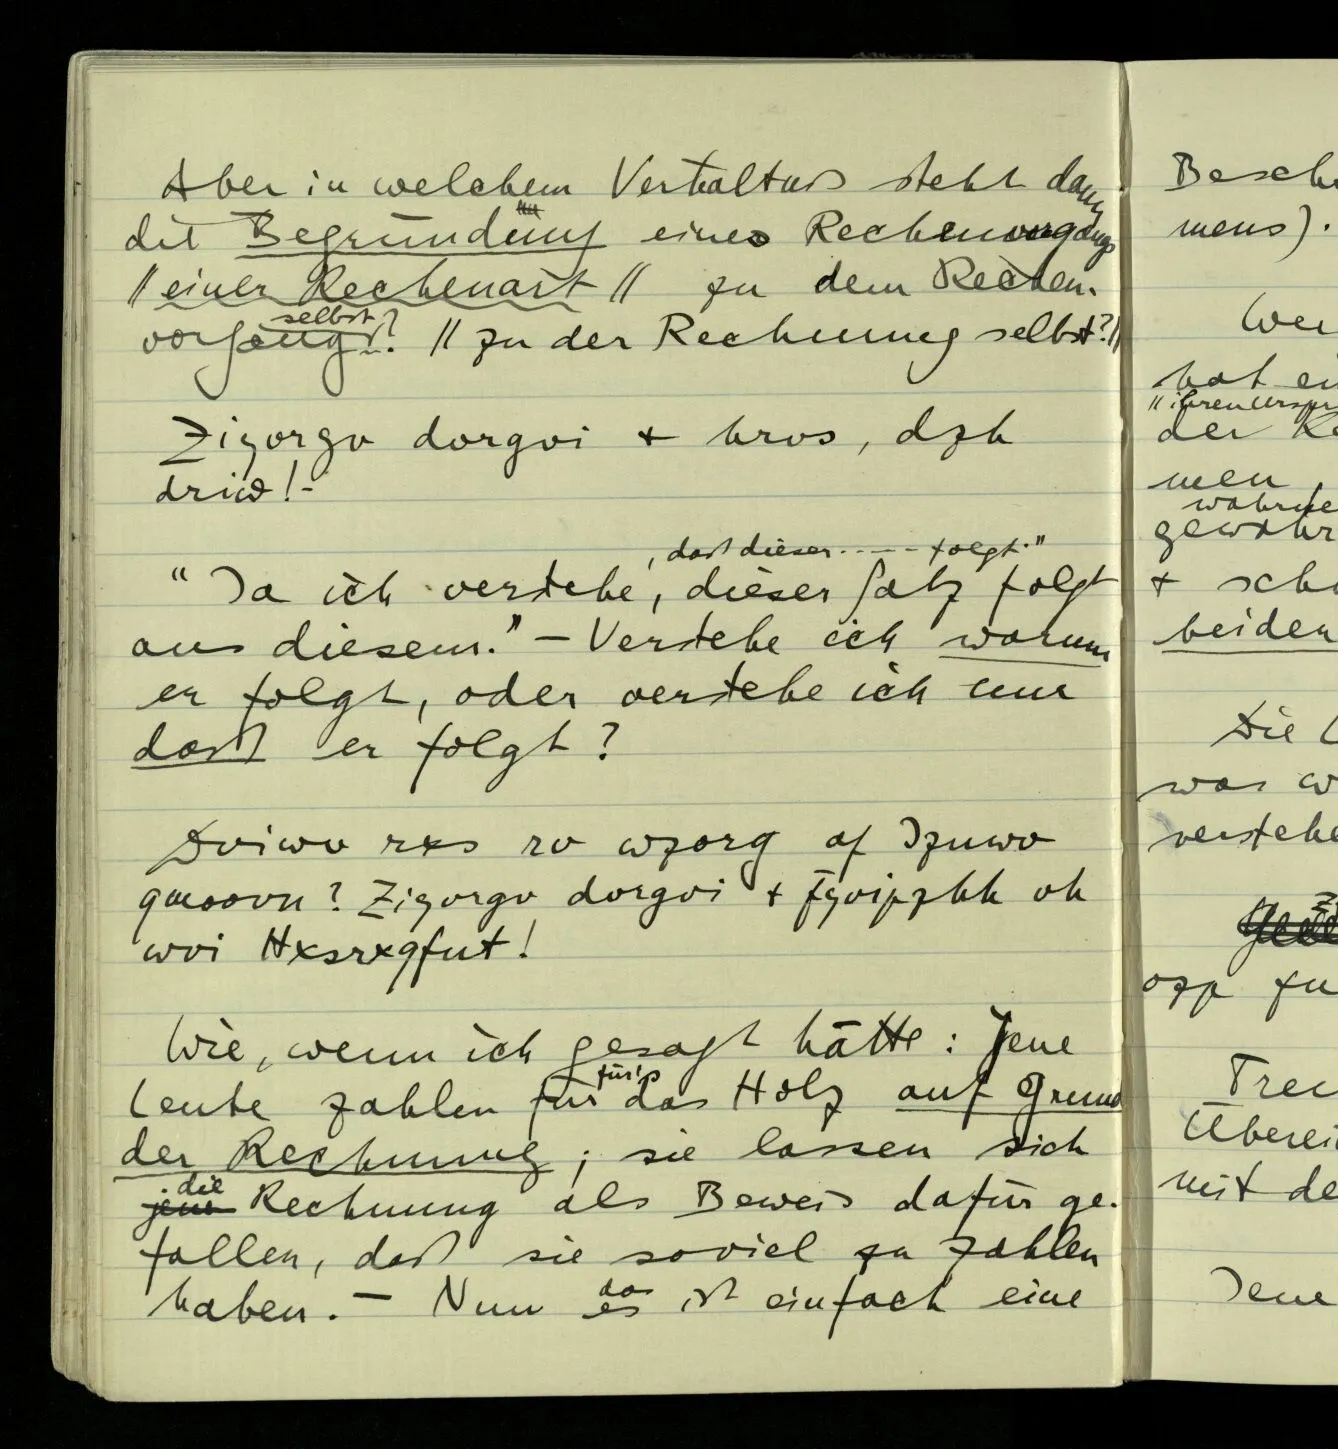 Aber in welchem Verhältnis steht dann
die Begründung eines Rechenvorgangs
// einer Rechenart // zu dem Rechen-
selbst?
vorgang? // zu der Rechnung selbst? //
Zigorgv dorgvi + hrvs, dzh
driw! –
, daß dieser ----- folgt."
"Ja ich verstehe, dieser Satz folgt
aus diesem." – Verstehe ich warum
er folgt, oder verstehe ich nur
daß er folgt?
rxs rv wzorg of
? Zigorgv dorgvi + vh
wvi Hxsrxgfut!
Wie, wenn ich gesagt hätte: Jene
für's
Leute zahlen für das Holz auf Grund
der Rechnung; sie lassen sich
die
jene Rechnung als Beweis dafür ge-
fallen, daß sie soviel zu zahlen
das
haben. – Nun es ist einfach eine
Besch
mens).
Wer
hat ei
der
men,
wahrne
gewahr
+ sch
beiden
Die
was w
verstehe
ozz fu
Tren
Überei
mit de
Jene